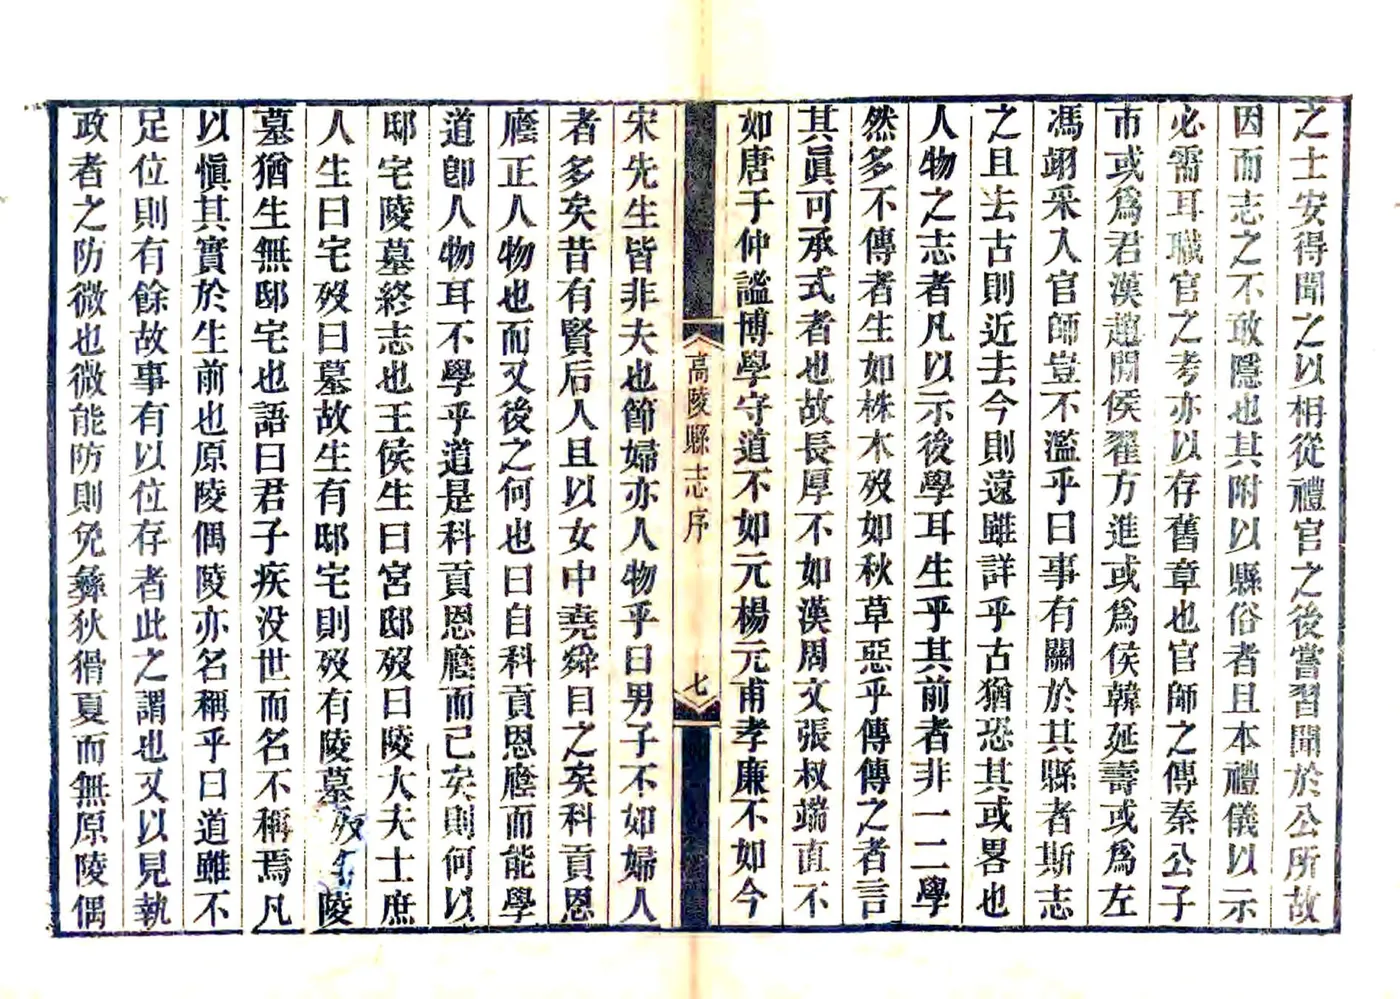 之士安得聞之以相從禮官之後嘗習聞於公所故
因而志之不敢隱也其附以縣俗者且本禮儀以示
必需耳職官之考亦以存舊章也官師之傳秦公子
市或爲君漢趙閒侯翟方進或爲侯韓延壽或爲左
馮翊采入官師豈不濫乎曰事有關於其縣者斯志
之且去古則近去今則遠雖詳乎古猶恐其或畧也
人物之志者凡以示後學耳生乎其前者非一二學
然多不傳者生如株木歿如秋草惡乎傳傳之者言
其眞可承式者也故長厚不如漢周文張叔端直不
如唐于仲謐博學守道不如元楊元甫孝廉不如今
高陵縣志序
七
宋先生皆非夫也節婦亦人物乎曰男子不如婦人
者多矣昔有賢后人且以女中堯舜目之矣科貢恩
廕正人物也而又後之何也曰自科貢恩廕而能學
道卽人物耳不學乎道是科貢恩廕而已矣則何以
邸宅陵墓終志也王侯生曰宮邸歿曰陵大夫士庶
人生曰宅歿曰墓故生有邸宅則歿有陵墓歿名陵
墓猶生無邸宅也語曰君子疾没世而名不稱焉凡
以愼其實於生前也原陵偶陵亦名稱乎曰道雖不
足位則有餘故事有以位存者此之謂也又以見執
政者之防微也微能防則免彝狄猾夏而無原陵偶